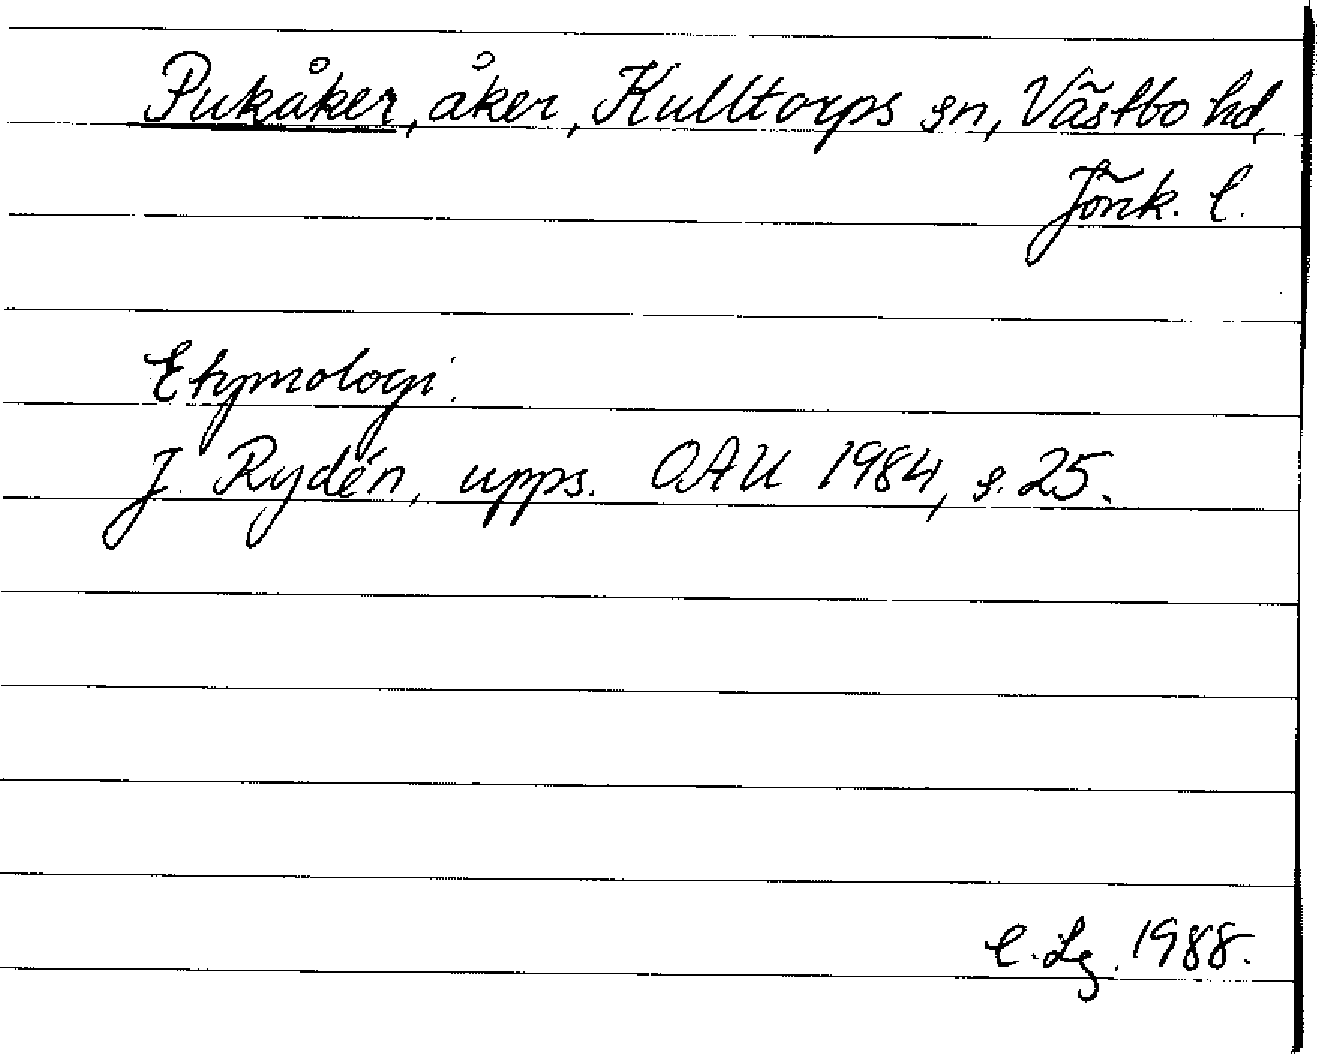 Pukåker, åker, Kulltorps sn, Västbo hd,
Jönk. l.
Etymologi.
J. Rydén, upps. OAU 1984, s. 25.
C. Lg. 1988.